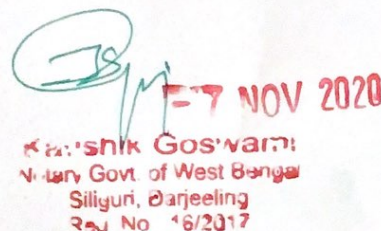 -7 NOV 2020
Kaushik Goswami
Notary Govt. of West Bengal
Siliguri, Darjeeling
Reg. No. 16/2017